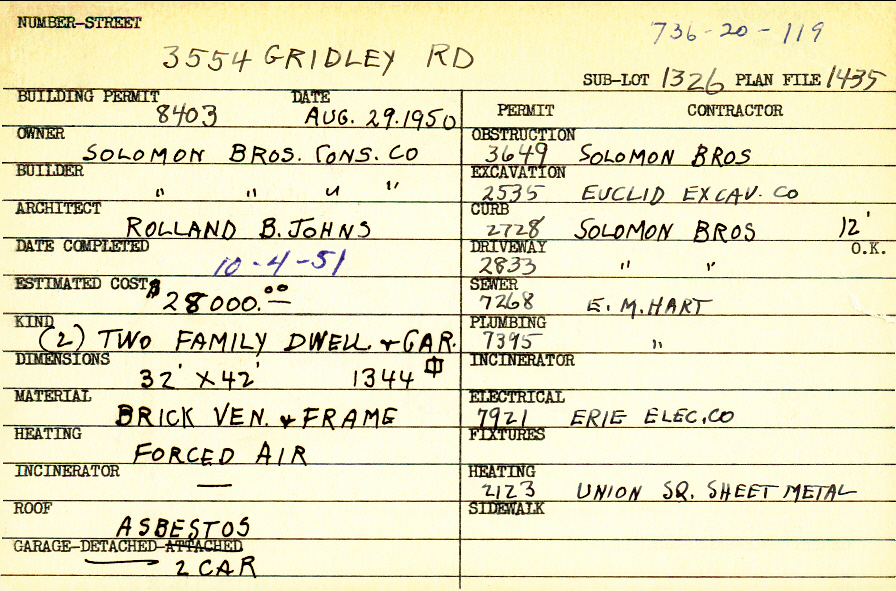 NUMBER-STREET
736-20-119
3554 GRIDLEY RD
SUB-LOT 1326 PLAN FILE 1435
BUILDING PERMIT DATE
8403 AUG. 29.1950
OWNER
SOLOMON BROS. CONS. CO
BUILDER
" " " "
ARCHITECT
ROLLAND B. JOHNS
DATE COMPLETED
10-4-51
ESTIMATED COST
$28000.00
KIND
(2) TWO FAMILY DWELL + GAR.
DIMENSIONS
32' X 42' 1344
MATERIAL
BRICK VEN. + FRAME
HEATING
FORCED AIR
INCINERATOR
—
ROOF
ASBESTOS
GARAGE-DETACHED-ATTACHED
2 CAR
PERMIT CONTRACTOR
OBSTRUCTION
3649 SOLOMON BROS
EXCAVATION
2535 EUCLID EXCAV. CO
CURB
2728 SOLOMON BROS 12'
DRIVEWAY O.K.
2833 " "
SEWER
7268 E. M. HART
PLUMBING
7395 "
INCINERATOR
ELECTRICAL
7921 ERIE ELEC. CO
FIXTURES
HEATING
2123 UNION SQ. SHEET METAL
SIDEWALK